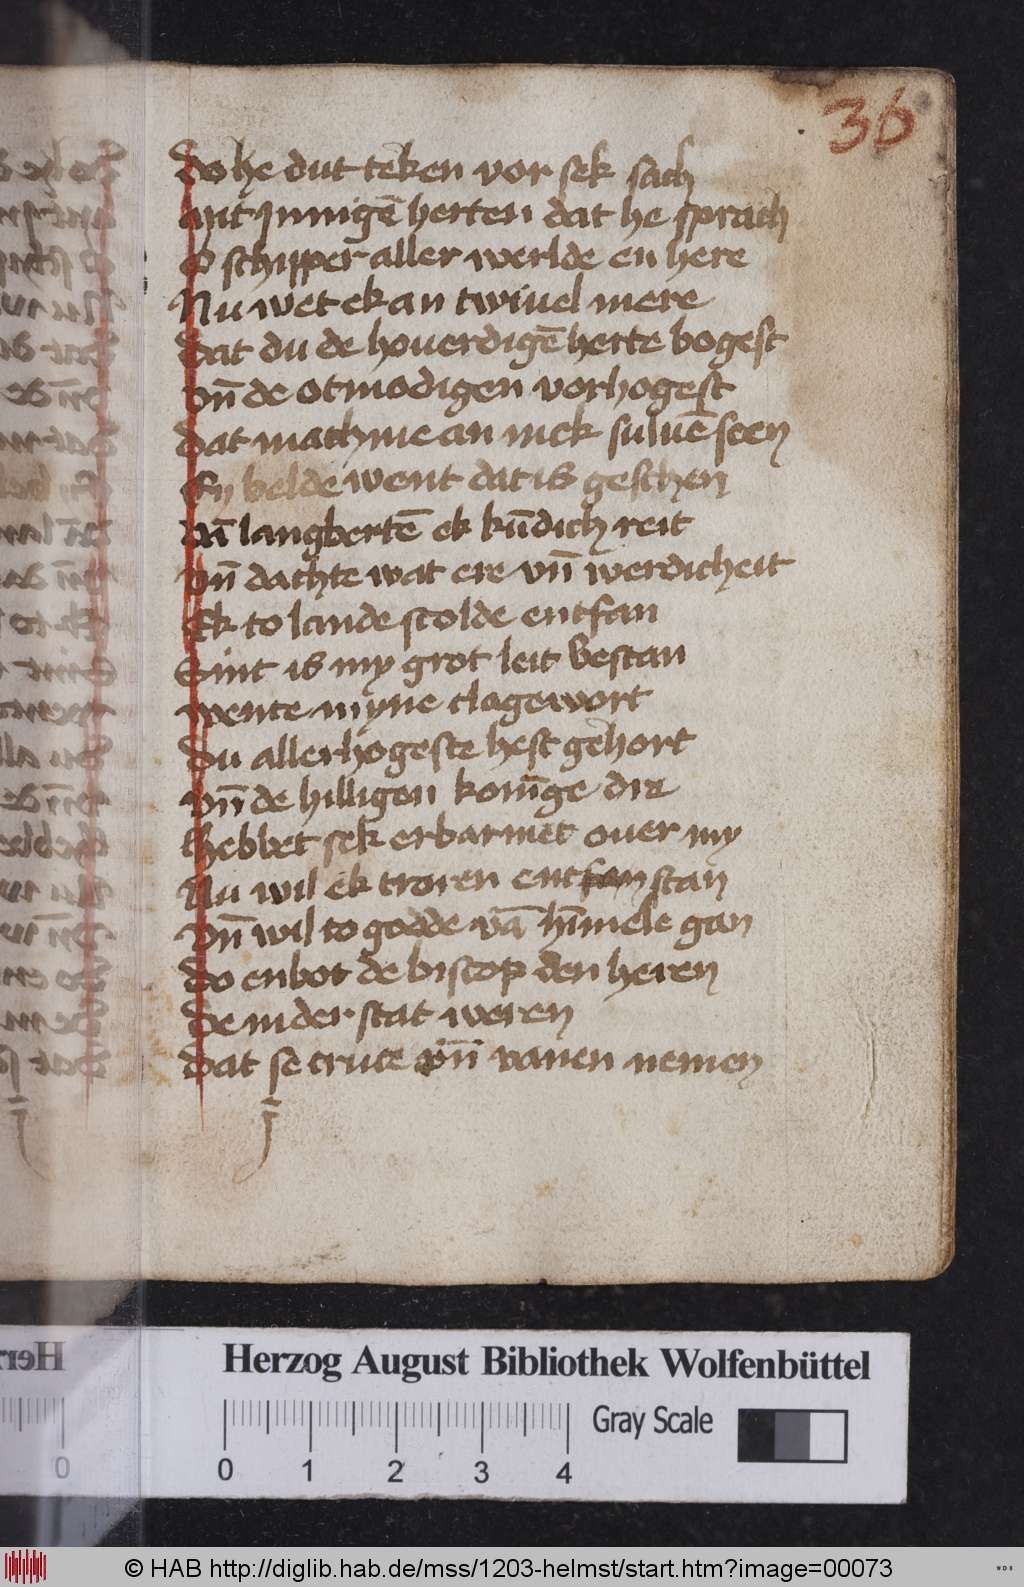 36
do he dut teken vor sek sach
Mit Jnnigē herten dat he sprach
O schipper aller werlde en here
Nu wet ek an twiuel mere
dat du de houerdigē herte bogest
vn̄ de otmodigen vorhogest
dat mach me an mek suluē seen
En belde went dat is geschen
vā langbertē ek kūdich reit
vn̄ dachte wat ere vn̄ werdicheit
Ek to lande scolde entfan
Sint is my grot leit bestan
wente myne clagewort
du allerhogeste hest gehort
vn̄ de hilligen konīge dre
Hebbet sek erbarmet ouer my
Nu wil ek troren ent stan
vn̄ wil to godde vā hīmele gan
do enbot de biscop den heren
de in der stat weren
dat se cruce vn̄ vanen nemen
Herzog August Bibliothek Wolfenbüttel
0 1 2 3 4 Gray Scale
© HAB http://diglib.hab.de/mss/1203-helmst/start.htm?image=00073